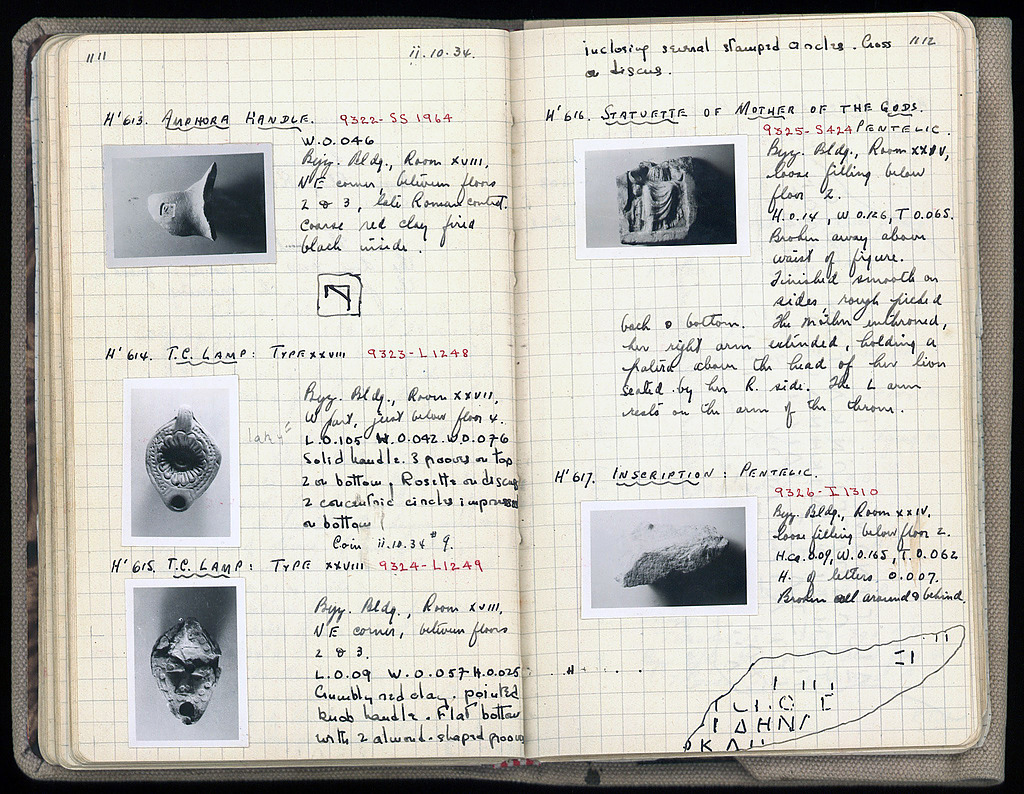 1111
ii.10.34.
H'613. AMPHORA HANDLE. 9322-SS 1964
W.0.046
Byz. Bldg., Room XVIII,
NE corner, between floors
2 & 3, late Roman context.
Coarse red clay fired
black inside.
H'614. T.C. LAMP: TYPE XXVIII 9323-L1248
Byz. Bldg., Room XXVII,
W part, just below floor 4.
L.0.105 W.0.042
Solid handle. 3 grooves on top
2 on bottom. Rosette on discus
2 concentric circles impressed
on bottom
Coin ii.10.34 #9.
H'615. T.C. LAMP: TYPE XXVIII 9324-L1249
Byz. Bldg., Room XVIII,
NE corner, between floors
2 & 3.
L.0.09 W.0.057 H.0.025
Crumbly red clay. pointed
knob handle. Flat bottom
with 2 almond-shaped grooves
1112
inclosing several stamped circles. Cross
on discus.
H'616. STATUETTE OF MOTHER OF THE GODS.
9325-S424 PENTELIC.
Byz. Bldg., Room XXIV,
loose filling below
floor 2.
H.0.14, W 0.126, T 0.065.
Broken away above
waist of figure.
Finished smooth on
sides rough picked
back & bottom. The Mother enthroned,
her right arm extended, holding a
patera above the head of her lion
seated by her R. side. The L arm
rests on the arm of the throne.
H'617. INSCRIPTION: PENTELIC.
9326-I 1310
Byz. Bldg., Room XXIV,
loose filling below floor 2.
H.ca. 0.09, W.0.165, T.0.062
H. of letters 0.007.
Broken all around & behind.
ΛΗΝ
ΚΑ